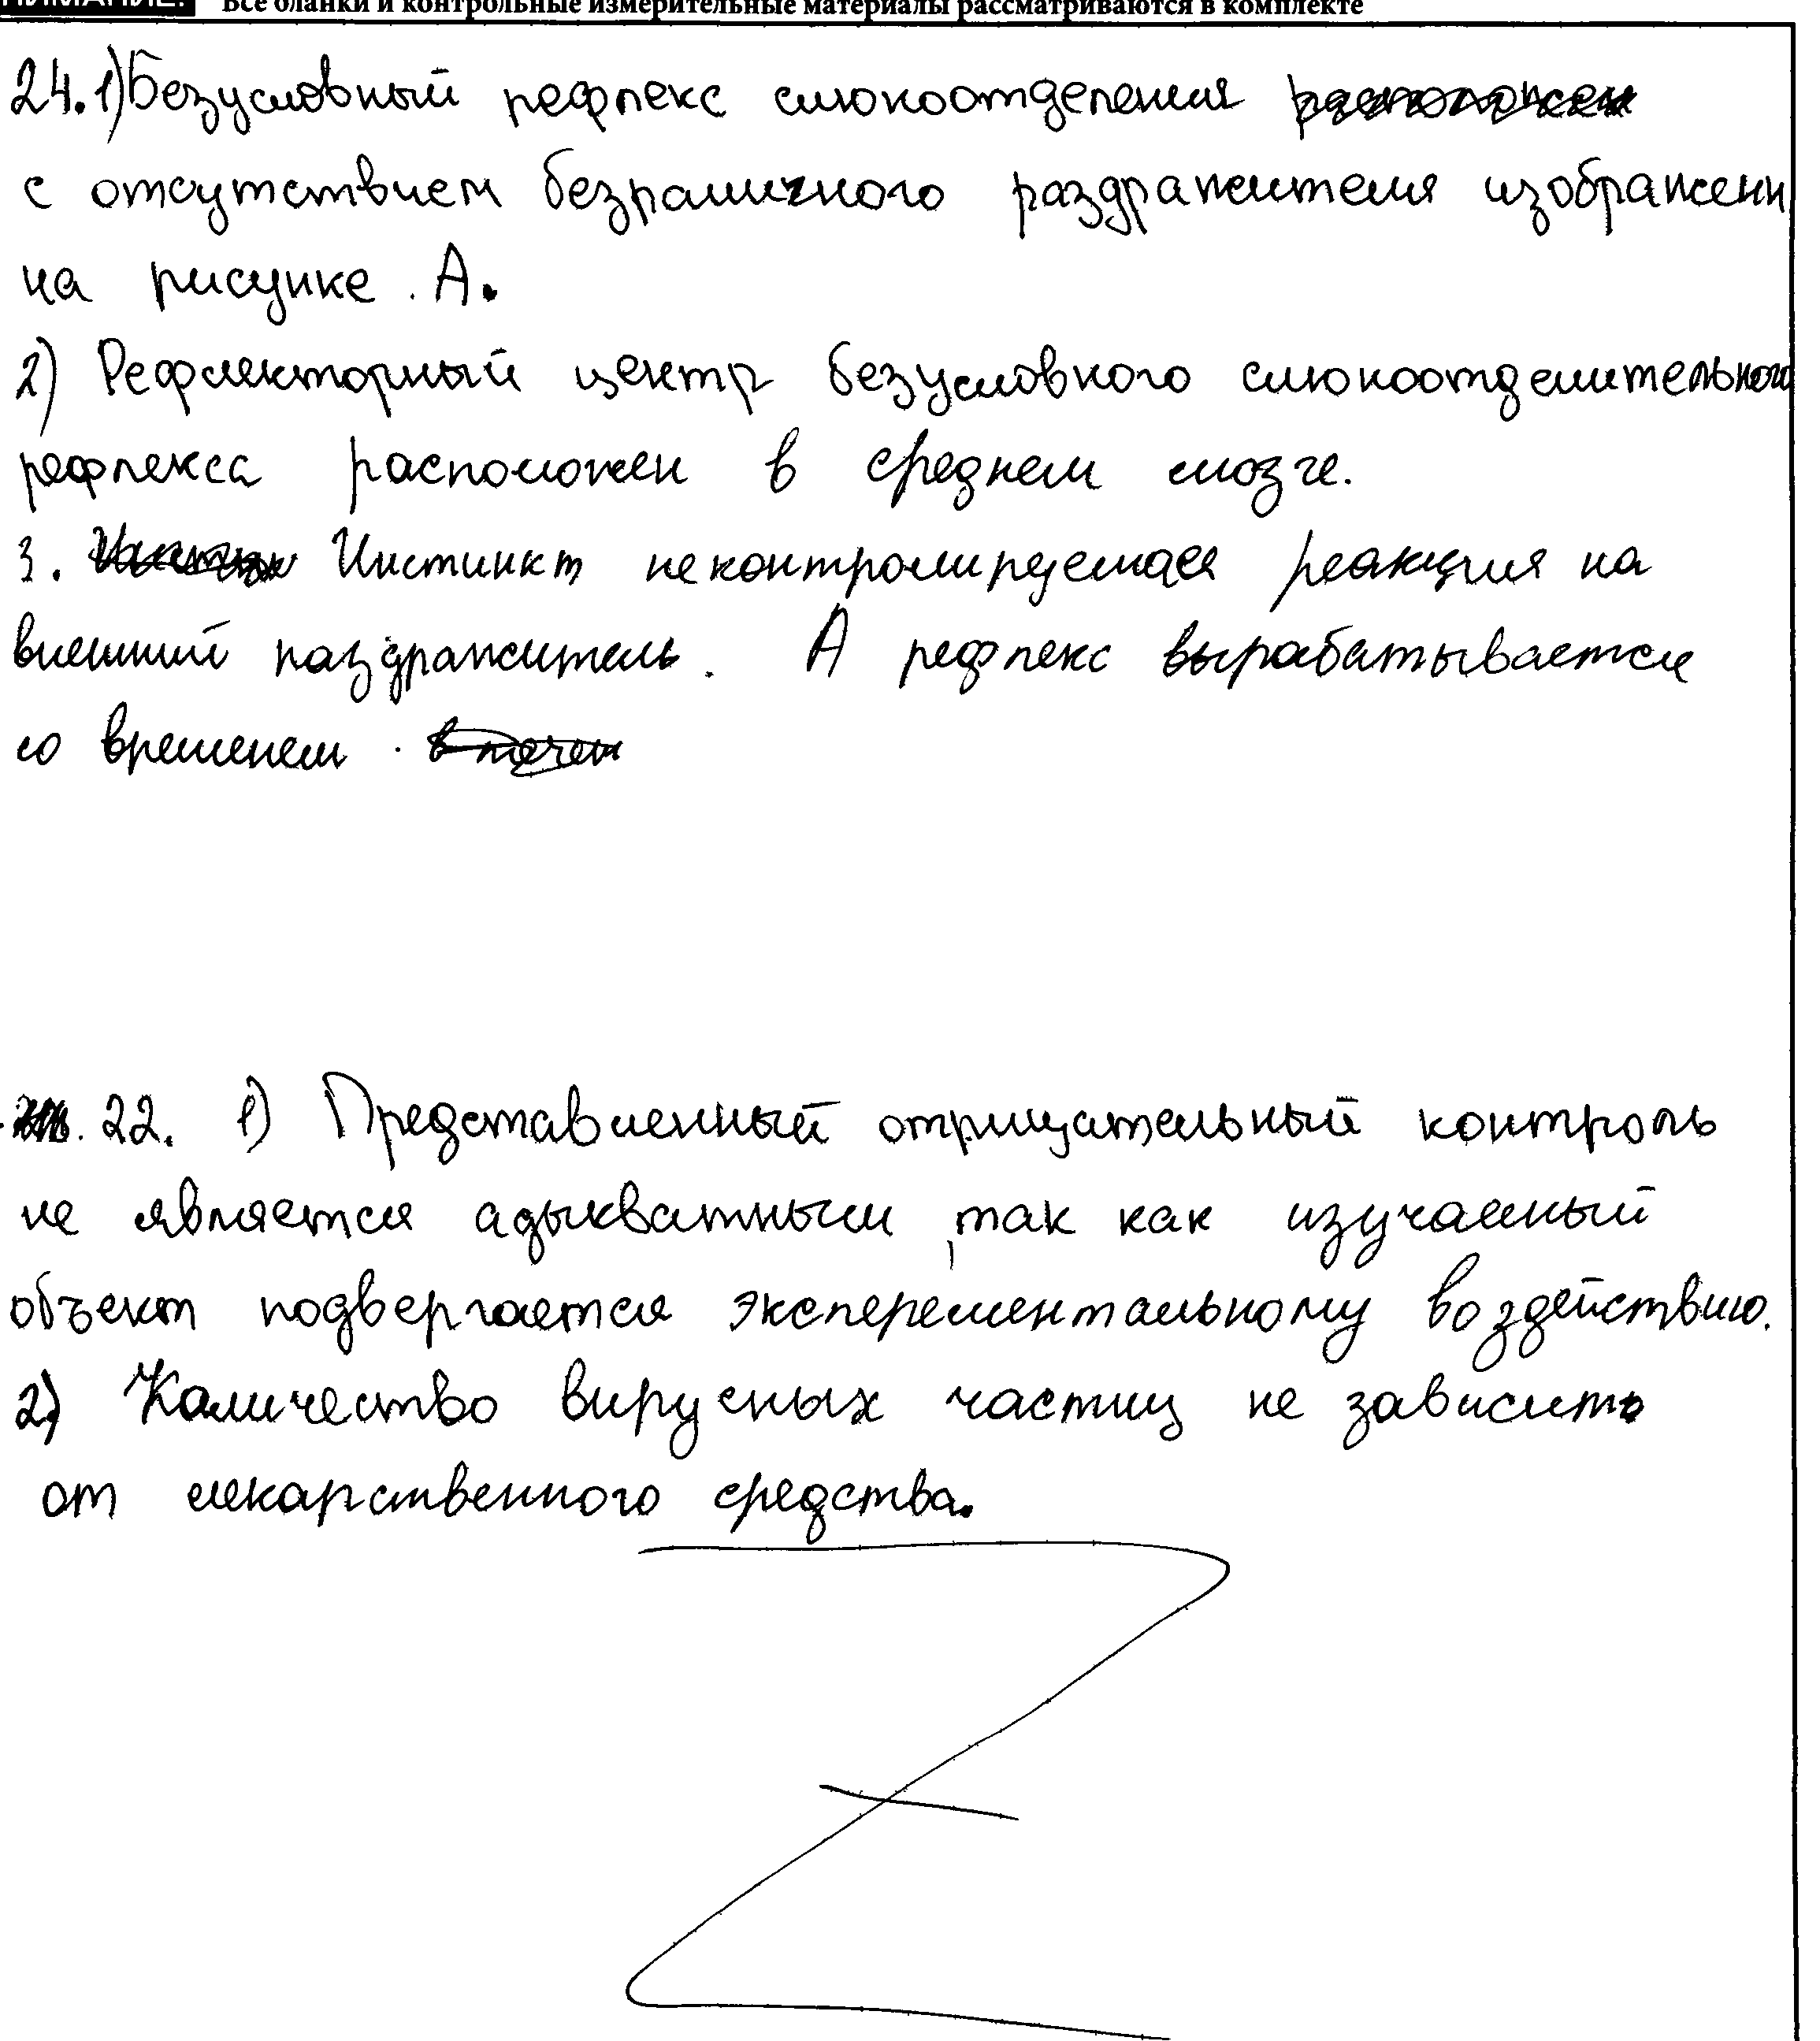 Все бланки и контрольные измерительные материалы рассматриваются в комплекте
24. 1) Безусловный рефлекс слюноотделения
с отсутствием безразличного раздражителя изображен
на рисунке А.
2) Рефлекторный центр безусловного слюноотделительного
рефлекса расположен в среднем мозге.
3. Инстинкт неконтролируемая реакция на
внешний раздражитель. А рефлекс вырабатывается
со временем.
22. 1) Представленный отрицательный контроль
не является адыкватным, так как изучаемый
объект подвергается эксперементальному воздействию.
2) Количество вирусных частиц не зависить
от лекарственного средства.